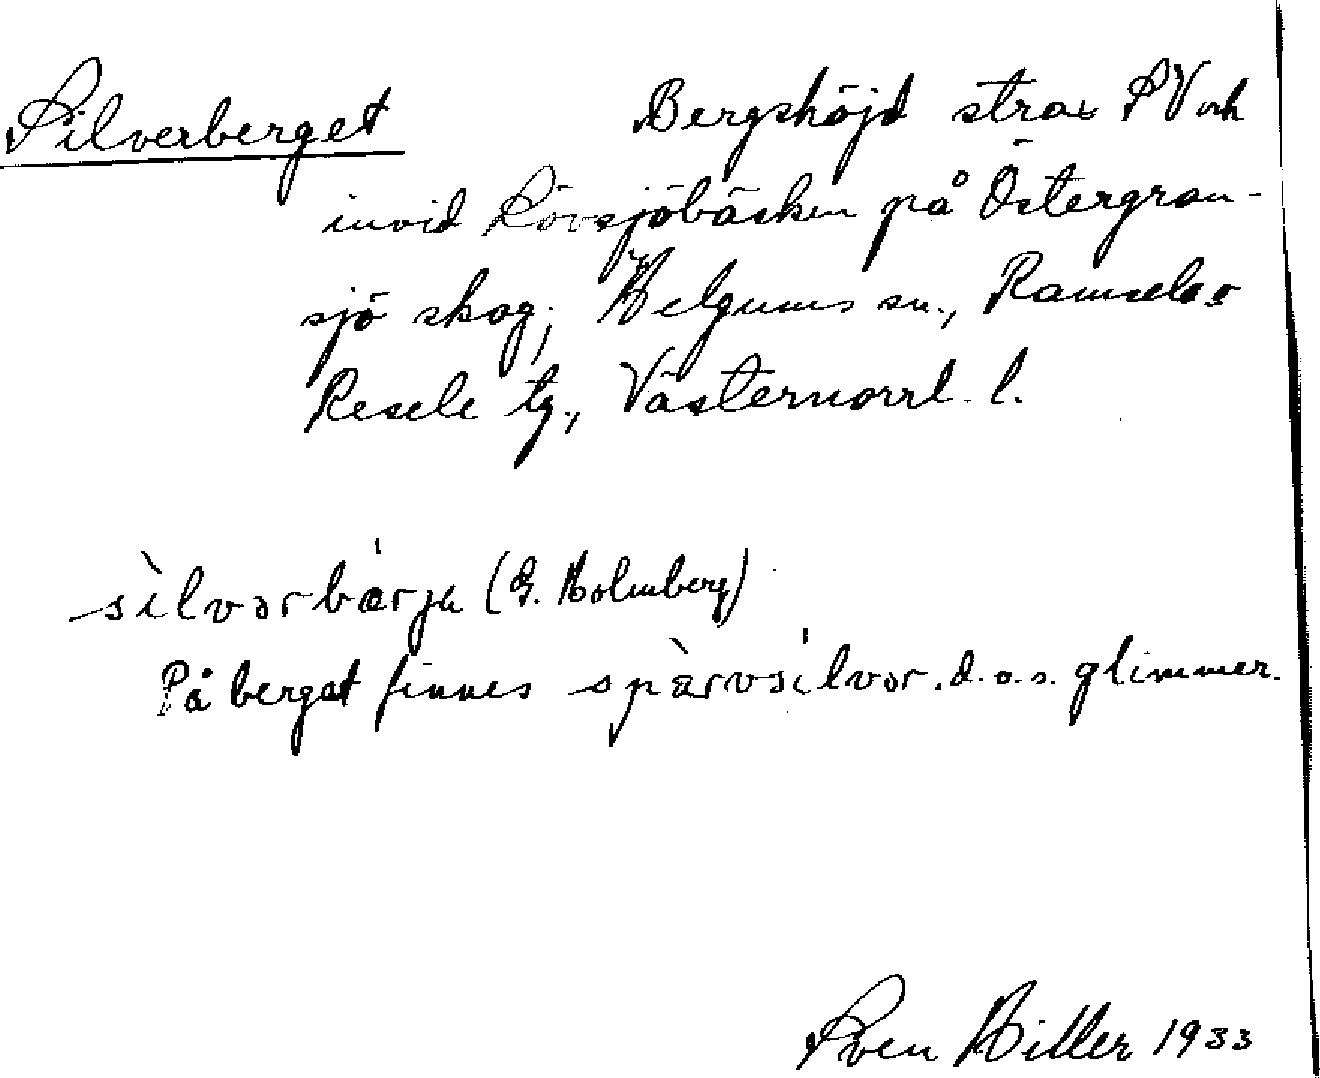 Silverberget Bergshöjd strax SV och
invid Rörsjöbäcken på Östergran-
sjö skog, Helgums sn., Ramsele o
Resele tg., Västernorrl. l.
sìlvərbæ̍rja (G. Holmberg)
På berget finnes spæ̀rvsi̍lvər. d.o.s. glimmer.
Sven Hiller 1933